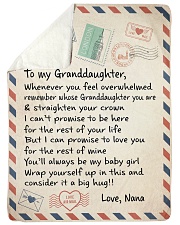 To my Granddaughter,
Whenever you feel overwhelmed
remember whose Granddaughter you are
& straighten your crown
I can't promise to be here
for the rest of your life
But I can promise to love you
for the rest of mine
You'll always be my baby girl
Wrap yourself up in this and
consider it a big hug!!
Love, Nana